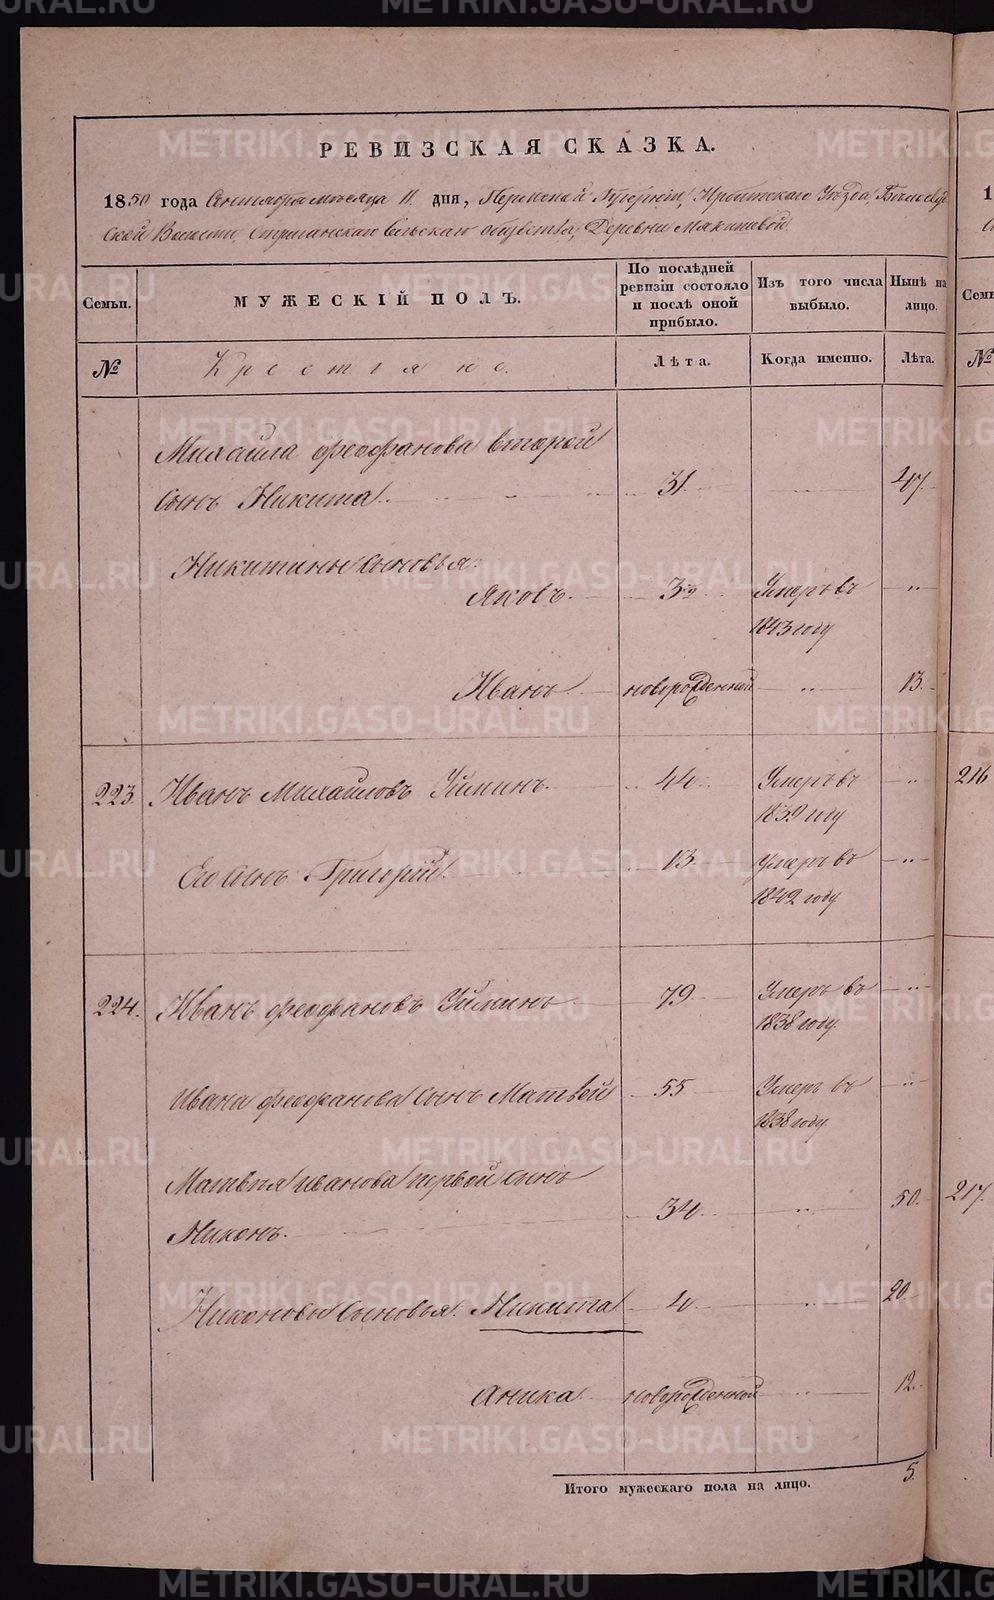 РЕВИЗСКАЯ СКАЗКА.
1850 года Сентября месяца 11 дня, Пермской Губернии, Ирбитскаго Уезда
ской Волости, Стриганскаго Сельскаго общества, Деревни Мякишевой.
Семьи. МУЖЕСКІЙ ПОЛЪ. По послѣдней ревизіи состояло и послѣ оной прибыло. Изъ того числа выбыло. Нынѣ на лицо.
№ Крестьяне. Лѣта. Когда именно. Лѣта.
Михайла Феофанова второй
сынъ Никита. 31. 47.
Никитины сыновья:
Яковъ. 3 1/2 Умеръ въ „
1843 году
Иванъ новорожденной „ 13.
223. Иванъ Михайловъ Уйминъ. 44. Умеръ въ „ 216
1839 году
Его сынъ Григорій. 13. Умеръ въ „
1842 году
224. Иванъ Феофановъ Уйминъ 79 Умеръ въ „
1838 году.
Ивана Феофанова сынъ Матвей 55 Умеръ въ „
1838 году.
Матвѣя Иванова первой сынъ
Никонъ. 34. „ 50. 217.
Никоновы сыновья: Никита 4 „ 20.
Аника новорожденной „ 12.
Итого мужескаго пола на лицо. 5.
METRIKI.GASO-URAL.RU